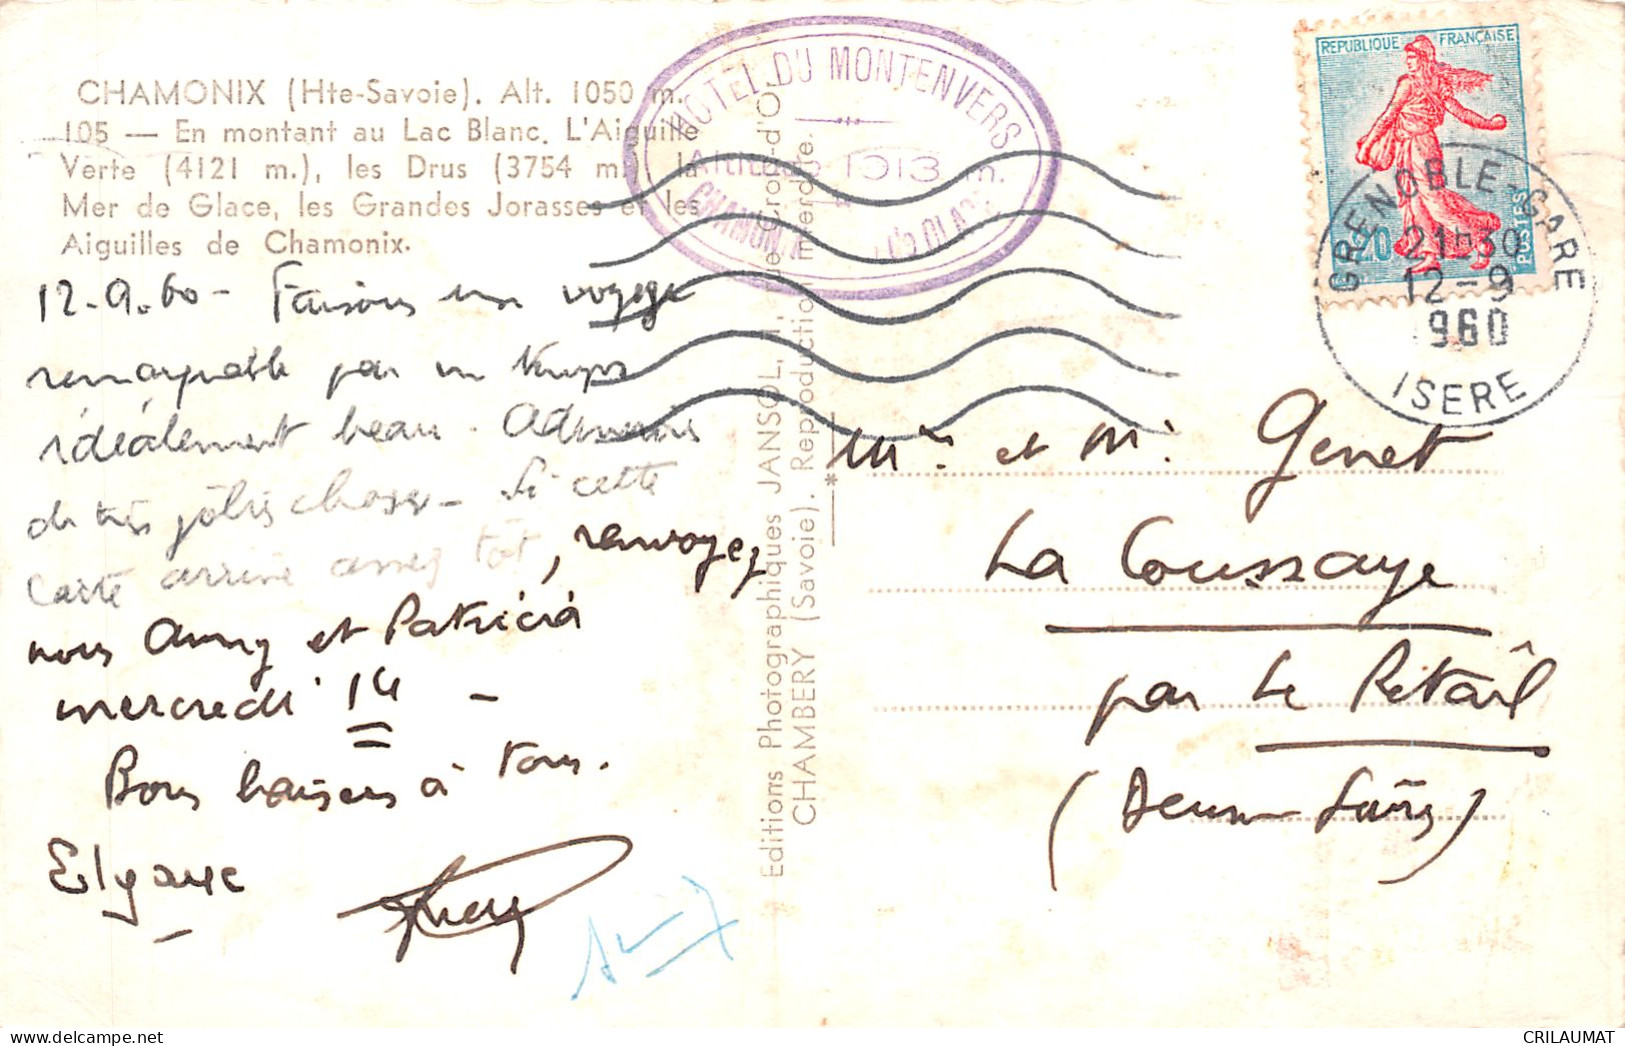 CHAMONIX (Hte-Savoie). Alt. 1050 m.
105 — En montant au Lac Blanc. L'Aiguille
Verte (4121 m.), les Drus (3754 m.), la
Mer de Glace, les Grandes Jorasses et les
Aiguilles de Chamonix.
12-9.60 - Faisons un voyage
remarquable par un temps
idéalement beau. Admirons
de très jolies choses - Si cette
carte arrive assez tôt, renvoyez
nous Anny et Patricia
mercredi 14 -
Bons baisers à tous.
Elyane
HOTEL DU MONTENVERS
Altitude 1913 m.
CHAMONIX
Editions Photographiques JANSOL, 1, rue Croix-d'Or
CHAMBERY (Savoie). Reproduction interdite.
REPUBLIQUE FRANÇAISE
0,20
POSTES
GRENOBLE-GARE
21h30
12-9
960
ISERE
Mme et Mr Genet
La Coussaye
par Le Retail
(Deux Sèvres)
CRILAUMAT